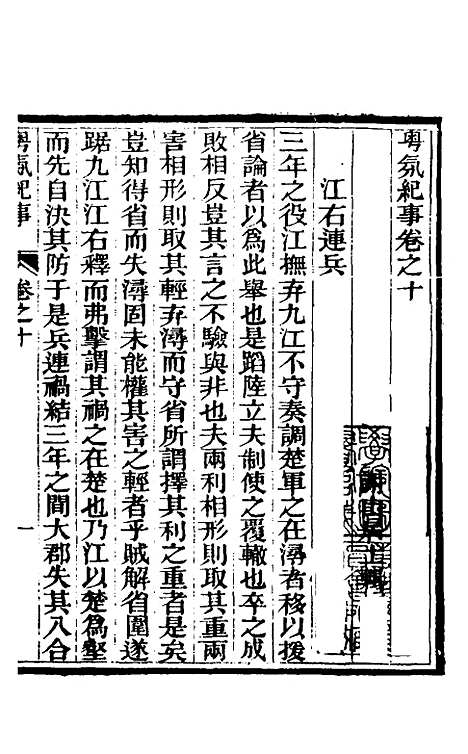 粵氛紀事卷之十
江右連兵
三年之役江撫弃九江不守奏調楚軍之在潯者移以援
省論者以為此舉也是蹈陸立夫制使之覆轍也卒之成
敗相反豈其言之不驗與非也夫兩利相形則取其重兩
害相形則取其輕弃潯而守省所謂擇其利之重者是矣
豈知得省而失潯固未能權其害之輕者乎賊解省圍遂
踞九江江右釋而弗擊謂其禍之在楚也乃江以楚為壑
而先自決其防于是兵連禍結三年之間大郡失其八合
粵氛紀事
卷之十
一